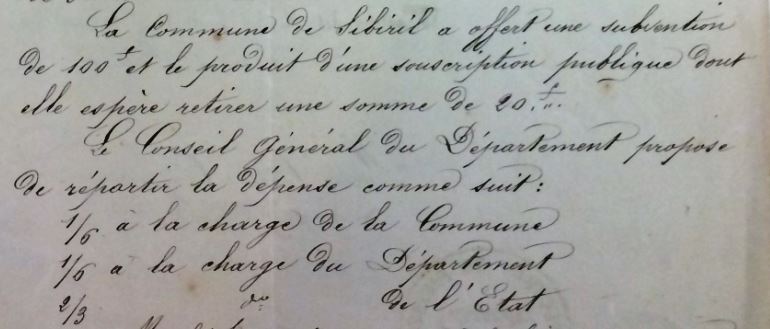 La Commune de Sibiril a offert une subvention
de 100 f et le produit d'une souscription publique dont
elle espère retirer une somme de 20. f ".
Le Conseil Général du Département propose
de répartir la dépense comme suit :
1/6 à la charge de la Commune
1/6 à la charge du Département
2/3 do de l'Etat